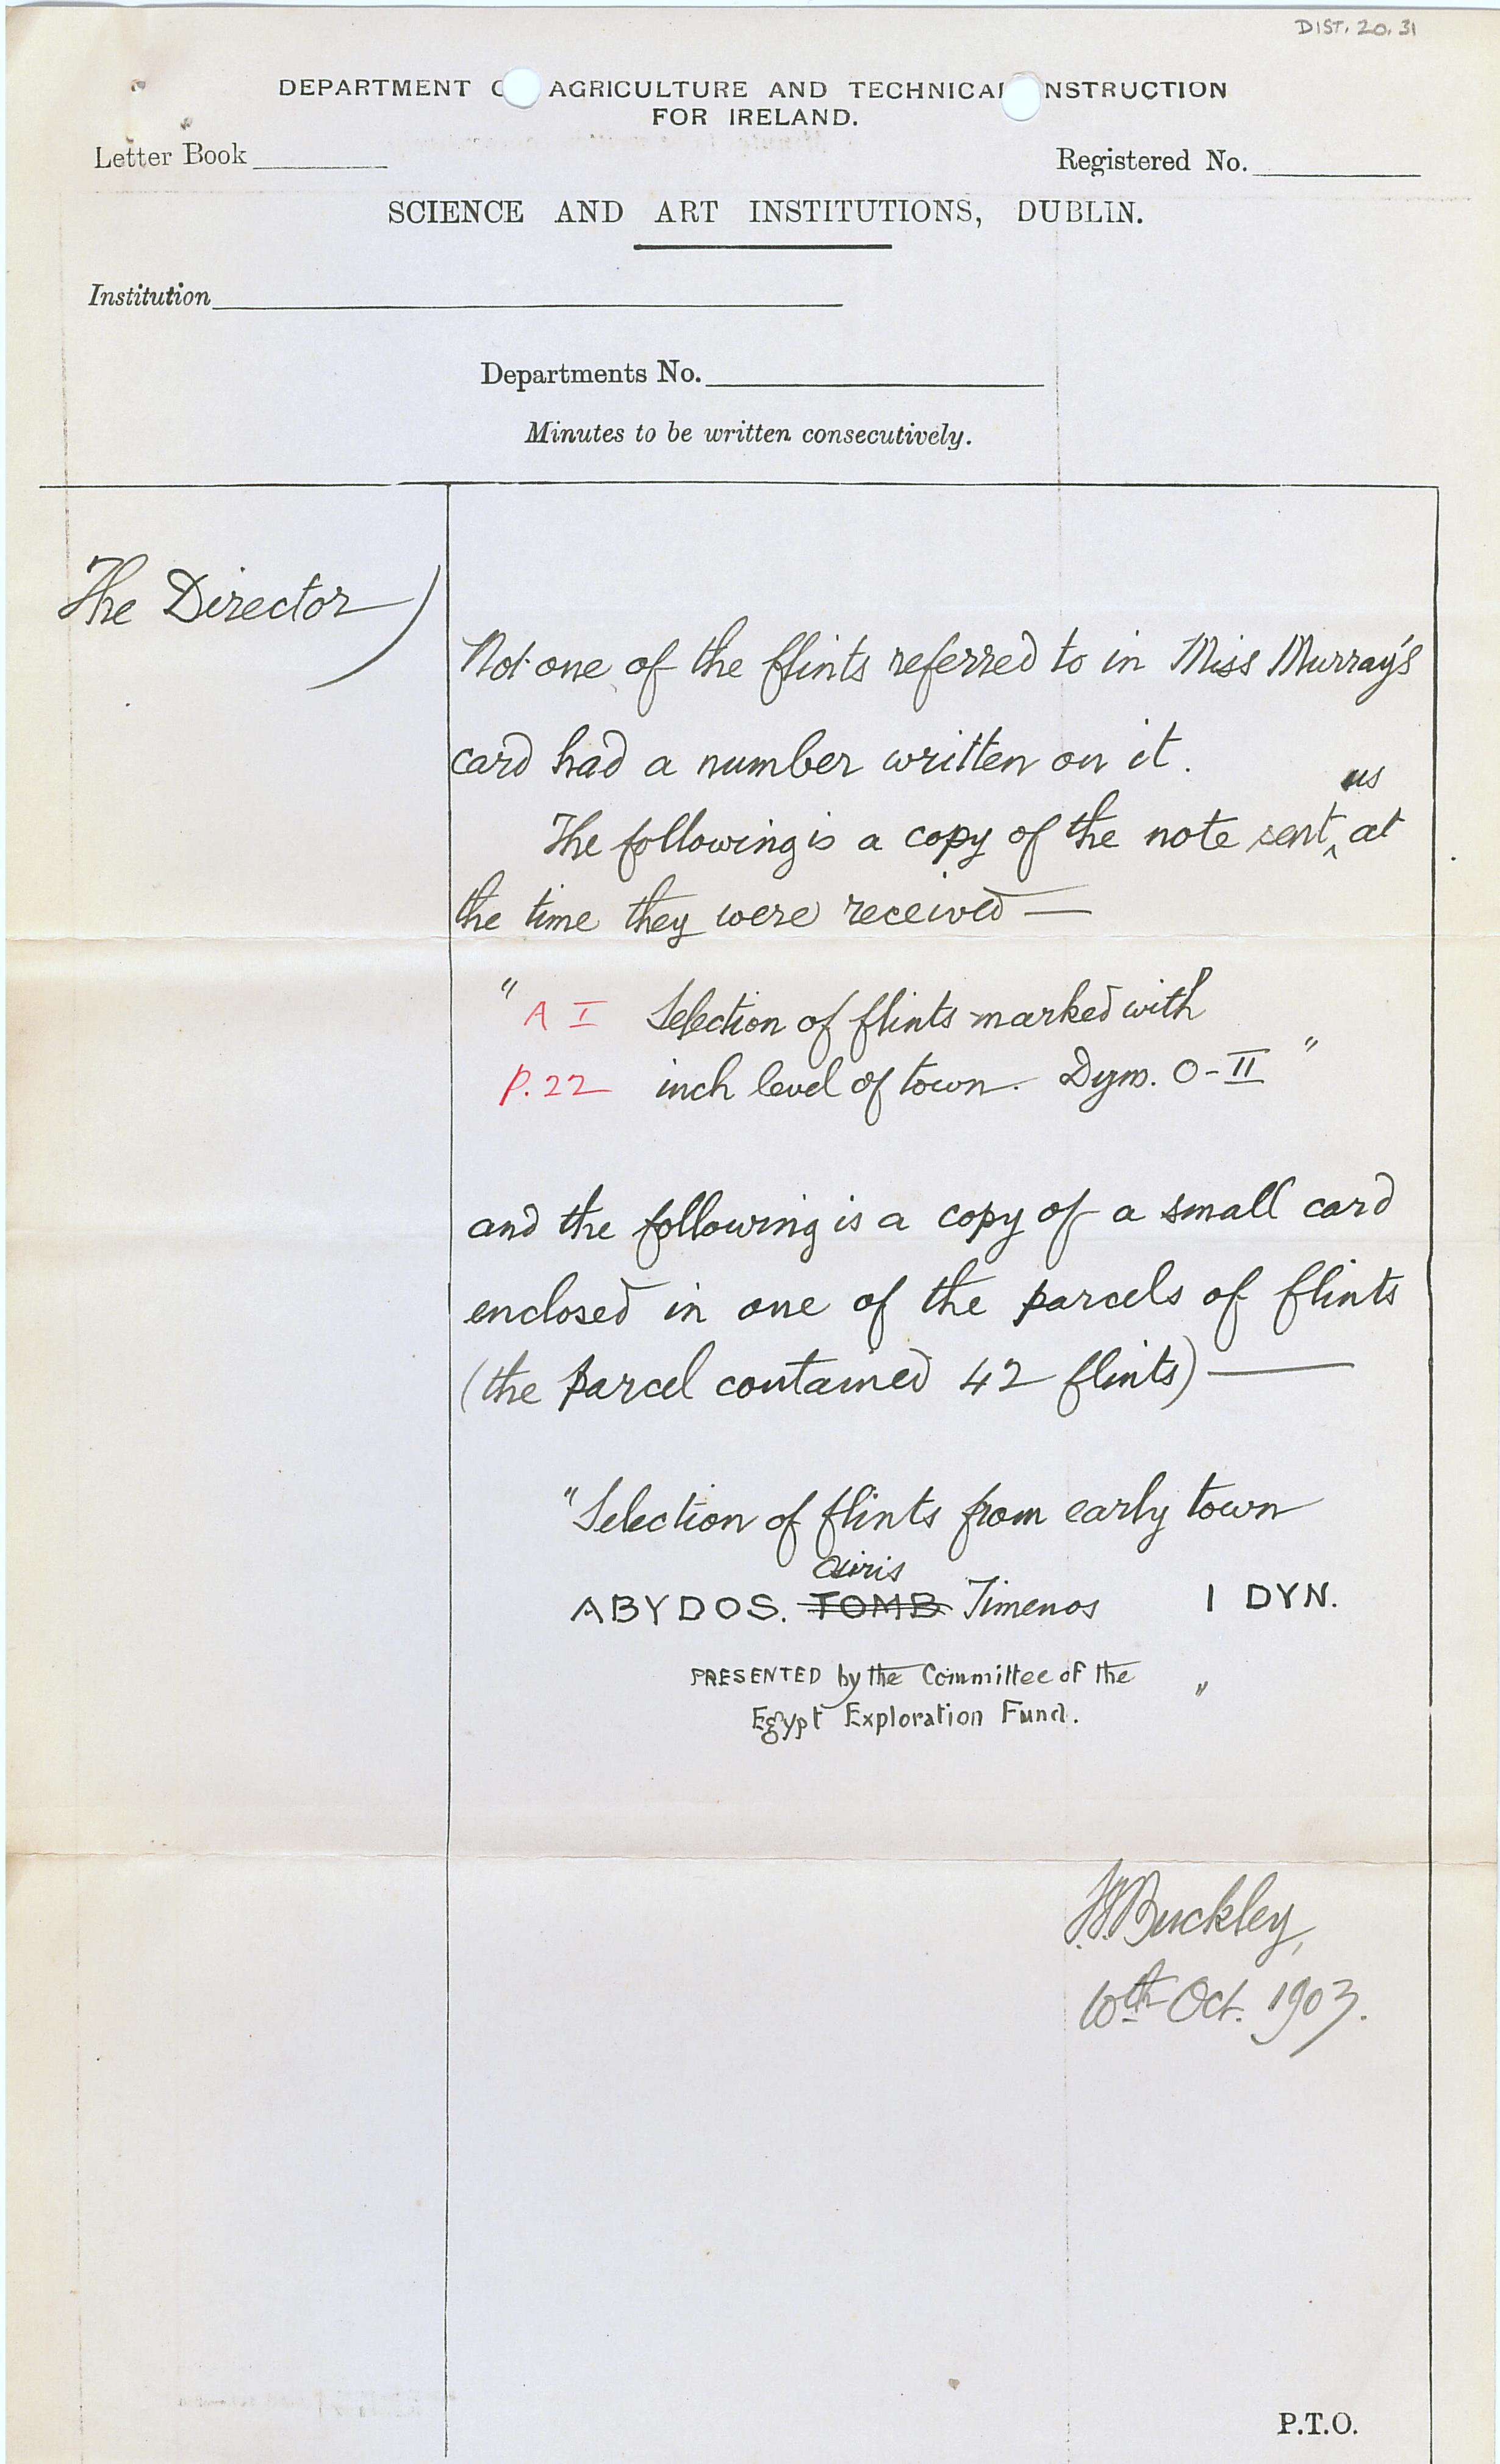 DIST. 20. 31
DEPARTMENT O AGRICULTURE AND TECHNICAL NSTRUCTION
FOR IRELAND.
Letter Book
Registered No.
SCIENCE AND ART INSTITUTIONS, DUBLIN.
Institution
Departments No.
Minutes to be written consecutively.
The Director
Not one of the flints referred to in Miss Murray's
card had a number written on it.
us
The following is a copy of the note sent ‸ at
the time they were received —
" A I Selection of flints marked with
P. 22 inch level of town. Dyn. 0 - II "
and the following is a copy of a small card
enclosed in one of the parcels of flints
(the parcel contained 42 flints) —
"Selection of flints from early town
Osiris
ABYDOS. TOMB Timenos I DYN.
PRESENTED by the Committee of the "
Egypt Exploration Fund.
Buckley,
10th Oct. 1903.
P.T.O.